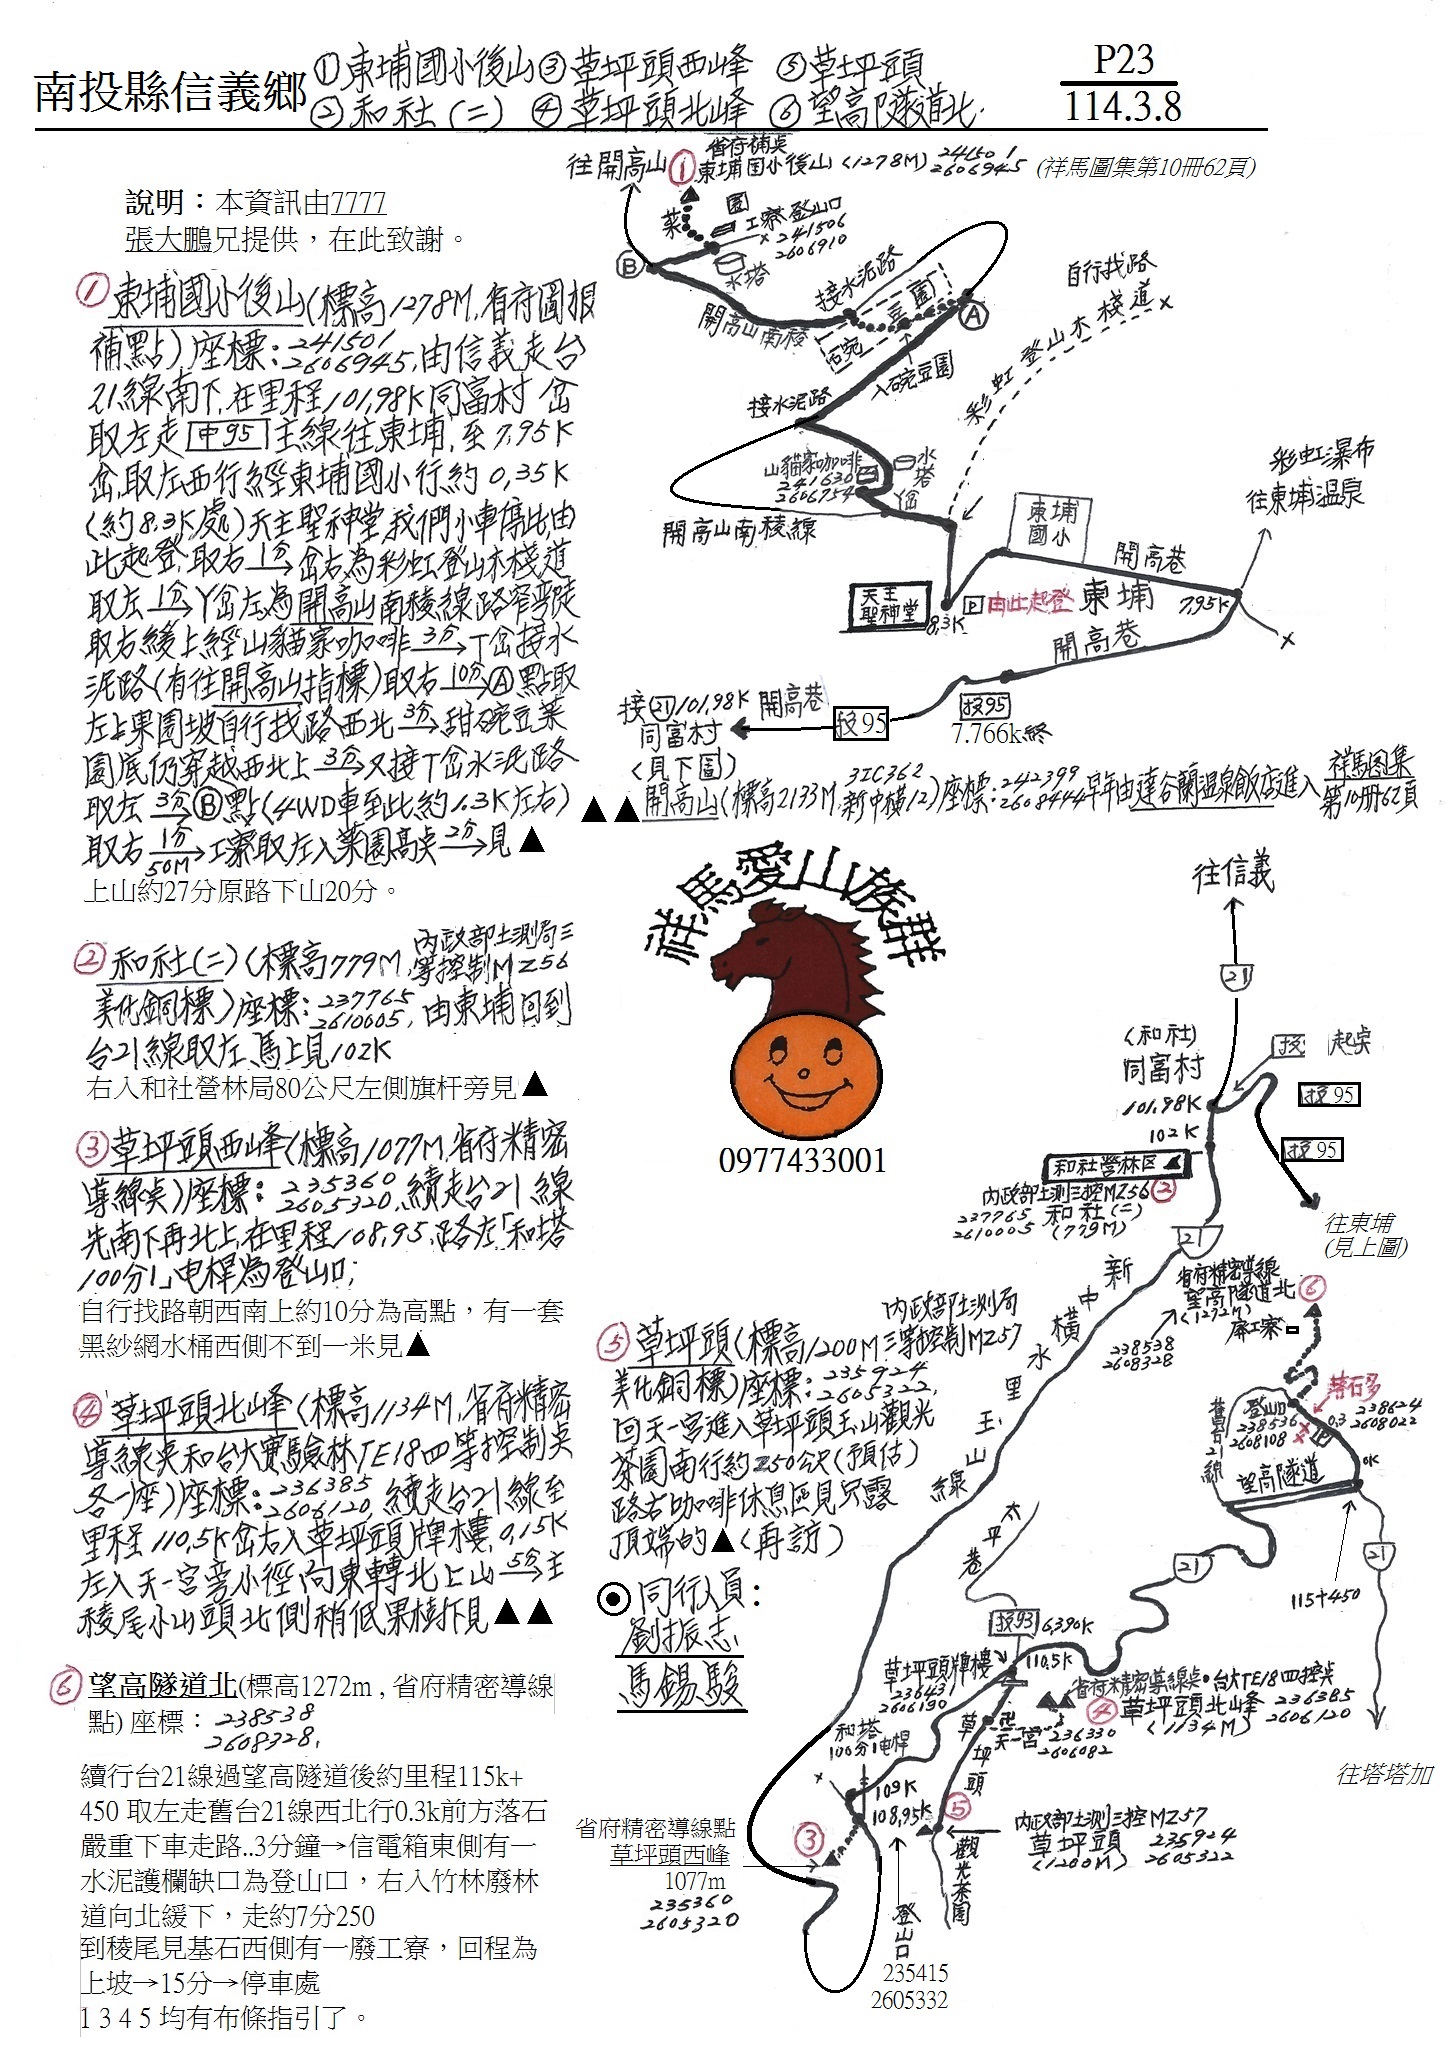 南投縣信義鄉
①東埔國小後山 ③草坪頭西峰 ⑤草坪頭
②和社(二) ④草坪頭北峰 ⑥望高隧道北
P23
114.3.8
說明：本資訊由7777
張大鵬兄提供，在此致謝。
① 東埔國小後山(標高1278M,省府圖根
補點)座標：241501
2606945,由信義走台
21線南下,在里程101,98K同富村岔
取左走中95主線往東埔,至7,95K
岔取左西行經東埔國小行約0,35K
(約8,3K處)天主聖神堂,我們小車停此,由
此起登,取右1分→岔右為彩虹登山木棧道
取左1分→丫岔左為開高山南稜線路窄彎陡
取右緩上經山貓家咖啡3分→丁岔接水
泥路(有往開高山指標)取右10分→Ⓐ點取
左上果園坡自行找路西北3分→甜碗豆菜
園底仍穿越西北上3分→又接丁岔水泥路
取左3分→Ⓑ點(4WD車至此約1.3K左右)
取右1分50M→工寮取左入菜園高点2分→見▲
上山約27分原路下山20分。
② 和社(二)(標高779M,內政部土測局三
等控制MZ56
美化銅標)座標：237765
2610005,由東埔回到
台21線取左、馬上見102K
右入和社營林局80公尺左側旗杆旁見▲
③ 草坪頭西峰(標高1077M,省府精密
導線点)座標：235360
2605320,續走台21線
先南下再北上,在里程108,95,路左「和塔
100分1」電桿為登山口;
自行找路朝西南上約10分為高點，有一套
黑紗網水桶西側不到一米見▲
④ 草坪頭北峰(標高1134M,省府精密
導線点和台大實驗林TE18四等控制点
各一座)座標：236385
2606120,續走台21線至
里程110,5K岔右入草坪頭牌樓,0,15K
左入天一宮旁小徑,向東轉北上山5分→主
稜尾小山頭北側稍低果樹下見▲▲
⑥ 望高隧道北(標高1272m , 省府精密導線
點) 座標：238538
2608328,
續行台21線過望高隧道後約里程115k+
450 取左走舊台21線西北行0.3k前方落石
嚴重下車走路..3分鐘→信電箱東側有一
水泥護欄缺口為登山口，右入竹林廢林
道向北緩下，走約7分250
到稜尾見基石西側有一廢工寮，回程為
上坡→15分→停車處
1 3 4 5 均有布條指引了。
往開高山
① 省府補点
東埔国小後山(1278M) 241501
2606945
(祥馬圖集第10冊62頁)
菜
園
工寮登山口
241506
2606910
Ⓑ
水塔
接水泥路
開高山南稜
豆園
碗
Ⓐ
入碗豆園
自行找路
彩虹登山木棧道
接水泥路
山貓家咖啡
241630
2606754
水塔
丫岔
開高山南稜線
彩虹瀑布
往東埔温泉
東埔
國小
開高巷
天主
聖神堂
8,3K
P
由此起登
東埔
7,95K
開高巷
接㉑101,98K
同富村
(見下圖)
開高巷
投95
投95
7.766k終
▲▲開高山(標高2133M,3IC362
新中橫12)座標：242399
2608444早年由達谷蘭温泉飯店進入
祥馬图集
第10冊62頁
祥馬愛山族群
0977433001
往信義
21
(和社)
同富村
101,98K
102K
起点
投95
投95
往東埔
(見上圖)
和社營林区▲
內政部土測三控MZ56②
237765 和社(二)
2610005 (779M)
21
新中橫
水里玉山線
省府精密導線
望高隧道北⑥
(1272M)
238538
2608328
廢工寮
登山口
238536
2608108
落石多
0,3
238624
2608022
P
舊台21線
望高隧道
0K
21
21
115+450
往塔塔加
⑤ 草坪頭(標高1200M,內政部土測局
三等控制MZ57
美化銅標)座標：235924
2605322,
回天一宮進入草坪頭玉山觀光
茶園南行約250公尺(預估)
路右咖啡休息区見只露
頂端的▲(再訪)
同行人員：
劉振志
馬錫駿
太平巷
投93
6,390K
草坪頭牌樓
236431
2606190
110,5K
省府精密導線点・台大TE18四控点
④草坪頭北峰 236385
(1134M) 2606120
天一宮 236330
2606082
草坪頭
和塔
100分1电桿
109K
108,95K
⑤
內政部土測三控MZ57
草坪頭 235924
(1200M) 2605322
觀光茶園
省府精密導線點
草坪頭西峰
1077m
235360
2605320
③
登山口
235415
2605332